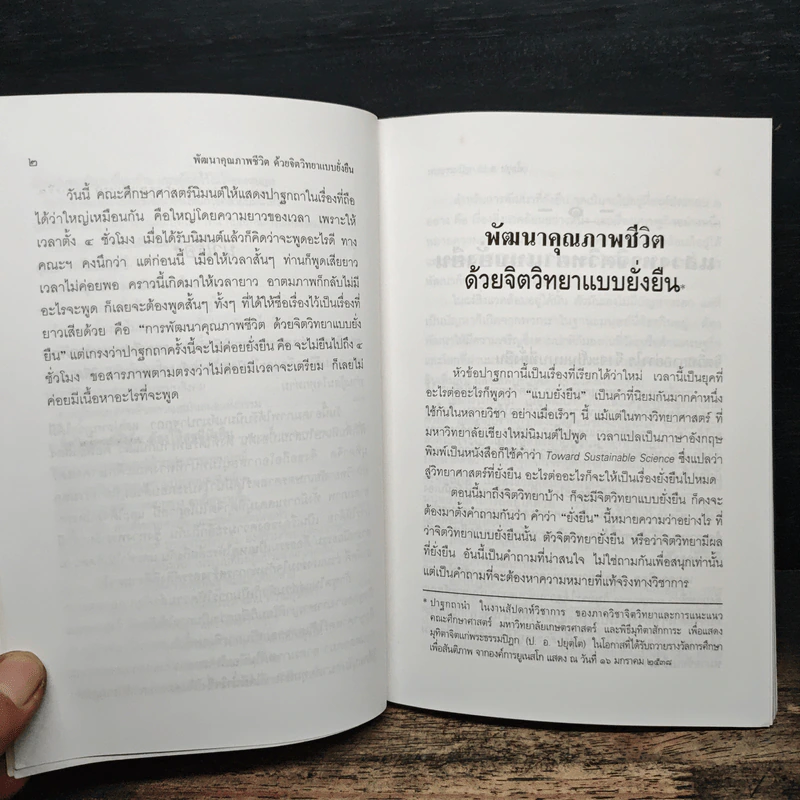 ๒
พัฒนาคุณภาพชีวิต ด้วยจิตวิทยาแบบยั่งยืน
วันนี้ คณะศึกษาศาสตร์นิมนต์ให้แสดงปาฐกถาในเรื่องที่ถือ
ได้ว่าใหญ่เหมือนกัน คือใหญ่โดยความยาวของเวลา เพราะให้
เวลาตั้ง ๔ ชั่วโมง เมื่อได้รับนิมนต์แล้วก็คิดว่าจะพูดอะไรดี ทาง
คณะฯ คงนึกว่า แต่ก่อนนี้ เมื่อให้เวลาสั้นๆ ท่านก็พูดเสียยาว
เวลาไม่ค่อยพอ คราวนี้เกิดมาให้เวลายาว อาตมภาพก็กลับไม่มี
อะไรจะพูด ก็เลยจะต้องพูดสั้นๆ ทั้งๆ ที่ได้ให้ชื่อเรื่องไว้เป็นเรื่องที่
ยาวเสียด้วย คือ “การพัฒนาคุณภาพชีวิต ด้วยจิตวิทยาแบบยั่ง
ยืน” แต่เกรงว่าปาฐกถาครั้งนี้จะไม่ค่อยยั่งยืน คือ จะไม่ยืนไปถึง ๔
ชั่วโมง ขอสารภาพตามตรงว่าไม่ค่อยมีเวลาจะเตรียม ก็เลยไม่
ค่อยมีเนื้อหาอะไรที่จะพูด
พัฒนาคุณภาพชีวิต
ด้วยจิตวิทยาแบบยั่งยืน*
หัวข้อปาฐกถานี้เป็นเรื่องที่เรียกได้ว่าใหม่ เวลานี้เป็นยุคที่
อะไรต่ออะไรก็พูดว่า “แบบยั่งยืน” เป็นคำที่นิยมกันมากคำหนึ่ง
ใช้กันในหลายวิชา อย่างเมื่อเร็วๆ นี้ แม้แต่ในทางวิทยาศาสตร์ ที่
มหาวิทยาลัยเชียงใหม่นิมนต์ไปพูด เวลาแปลเป็นภาษาอังกฤษ
พิมพ์เป็นหนังสือก็ใช้คำว่า Toward Sustainable Science ซึ่งแปลว่า
สู่วิทยาศาสตร์ที่ยั่งยืน อะไรต่ออะไรก็จะให้เป็นเรื่องยั่งยืนไปหมด
ตอนนี้มาถึงจิตวิทยาบ้าง ก็จะมีจิตวิทยาแบบยั่งยืน ก็คงจะ
ต้องมาตั้งคำถามกันว่า คำว่า “ยั่งยืน” นี้หมายความว่าอย่างไร ที่
ว่าจิตวิทยาแบบยั่งยืนนั้น ตัวจิตวิทยายั่งยืน หรือว่าจิตวิทยามีผล
ที่ยั่งยืน อันนี้เป็นคำถามที่น่าสนใจ ไม่ใช่ถามกันเพื่อสนุกเท่านั้น
แต่เป็นคำถามที่จะต้องหาความหมายที่แท้จริงทางวิชาการ
* ปาฐกถานำ ในงานสัปดาห์วิชาการ ของภาควิชาจิตวิทยาและการแนะแนว
คณะศึกษาศาสตร์ มหาวิทยาลัยเกษตรศาสตร์ และพิธีมุทิตาสักการะ เพื่อแสดง
มุทิตาจิตแก่พระธรรมปิฎก (ป. อ. ปยุตฺโต) ในโอกาสที่ได้รับถวายรางวัลการศึกษา
เพื่อสันติภาพ จากองค์การยูเนสโก แสดง ณ วันที่ ๑๖ มกราคม ๒๕๓๘